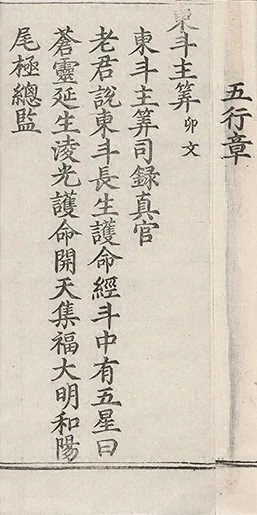 五行章
東斗主筭 卯文
東斗主筭司録真官
老君說東斗長生護命經斗中有五星曰
蒼靈延生淩光護命開天集福大明和陽
尾極總監